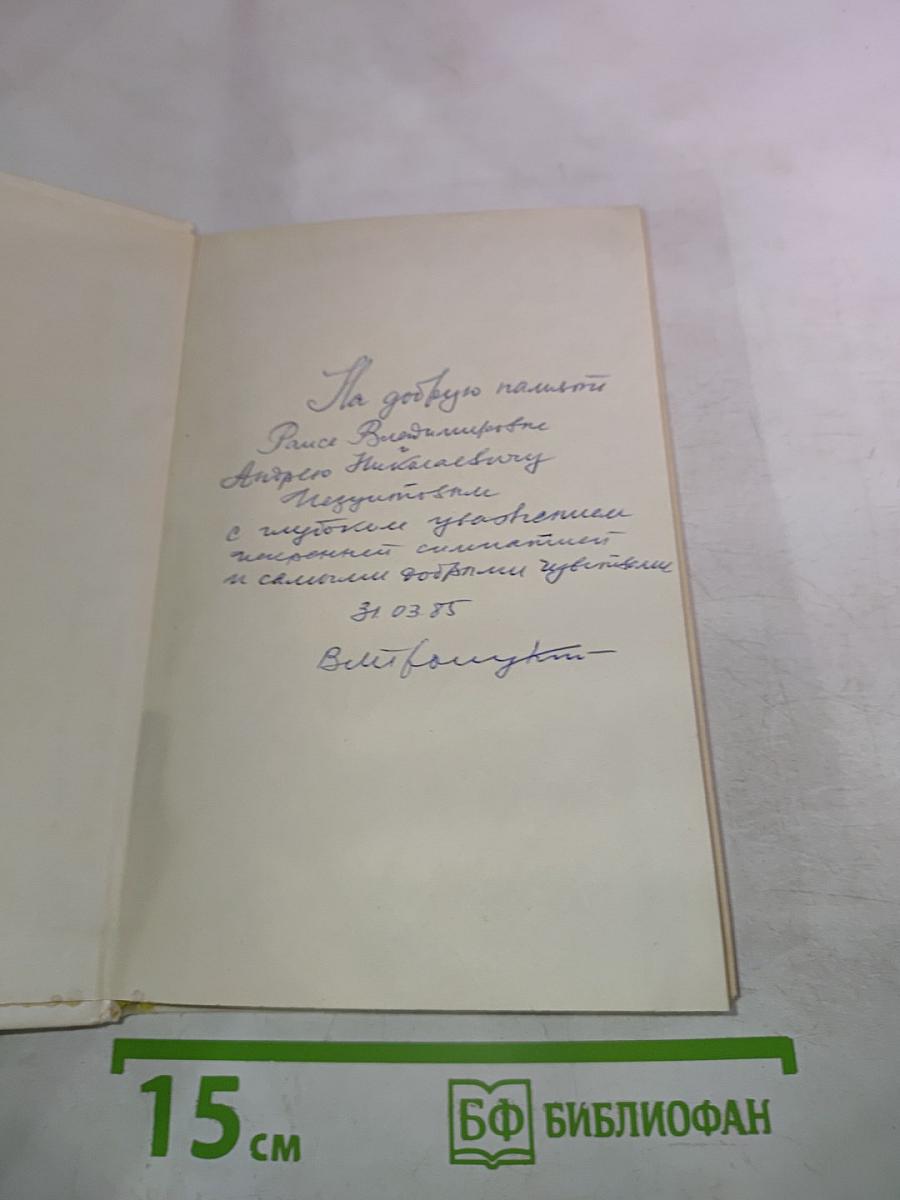 На добрую память
Раисе Владимировне
и
Андрею Николаевичу
Иезуитовым
с глубоким уважением
искренней симпатией
и самыми добрыми чувствами
31.03.85
15 см
БФ БИБЛИОФАН